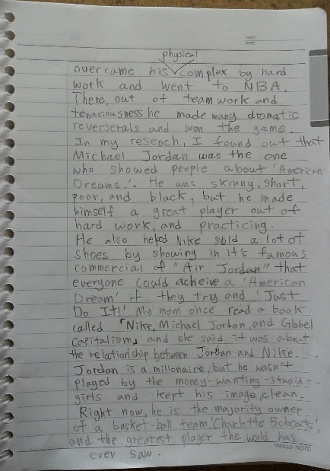 physical
overcame his complex by hard
work and went to NBA.
There, out of team work and
tenaciousness he made many dramatic
reverserals and won the game.
In my reseach, I found out that
Michael Jordan was the one
who showed people about 'American
Dreams'. He was skinny, short,
poor, and black, but he made
himself a great player out of
hard work, and practicing.
He also helped Nike sold a lot of
shoes by showing in it's famous
commercial of "Air Jordan" that
everyone could acheive a 'American
Dream' if they try and 'Just
Do It!' My mom once read a book
called 「Nike, Michael Jordan, and Globel
Capitalism」 and she said it was about
the relationship between Jordan and Nike.
Jordan is a millonaire, but he wasn't
played by the money-wanting-stupid-
girls and kept his image clean.
Right now, he is the majority owner
of a basket-ball team 'Charlotte Bobcats'
and the greatest player the world has
ever saw.